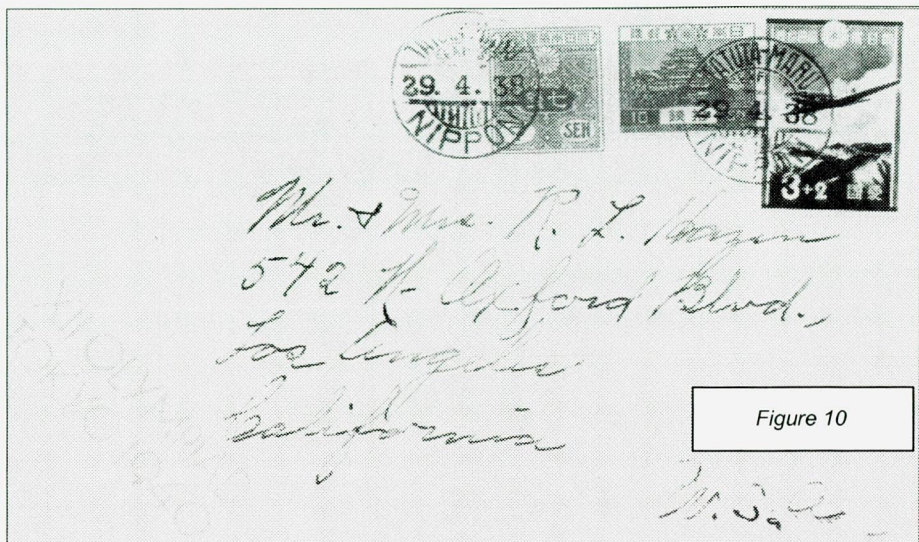 29. 4. 38
NIPPON
SEN
10
TATUTA-MARU
29 4. 38
NIPPON
3+2
Mr. & Mrs. R. L.
542 N. Oxford Blvd.,
Los Angeles
California
U.S.A
Figure 10